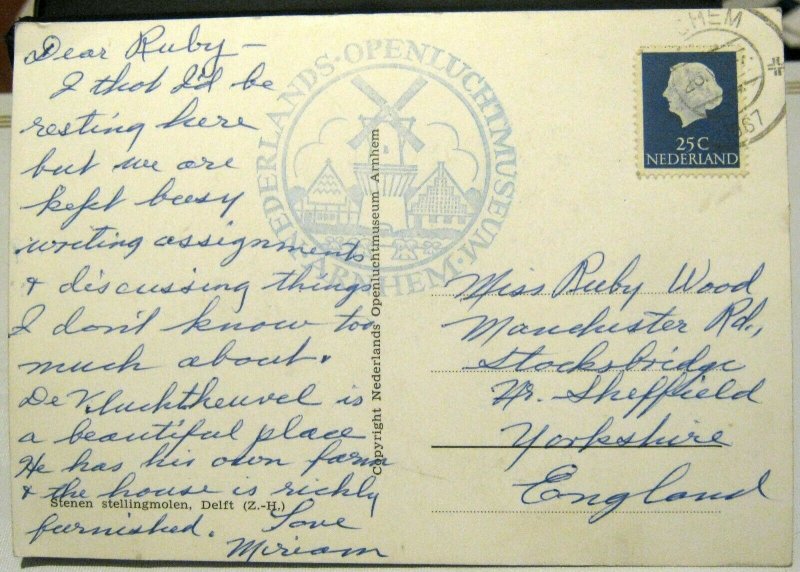 Dear Ruby —
I thot I'd be
resting here
but we are
kept busy
writing assignments
& discussing things
I don't know too
much about.
De Vluchtheuvel is
a beautiful place
He has his own farm
& the house is richly
furnished. Love
Miriam
Stenen stellingmolen, Delft (Z.-H.)
Copyright Nederlands' Openluchtmuseum Arnhem
NEDERLANDS·OPENLUCHTMUSEUM·
ARNHEM·
25C
NEDERLAND
Miss Ruby Wood
Manchester Rd.,
Stocksbridge
Nr. Sheffield
Yorkshire
England